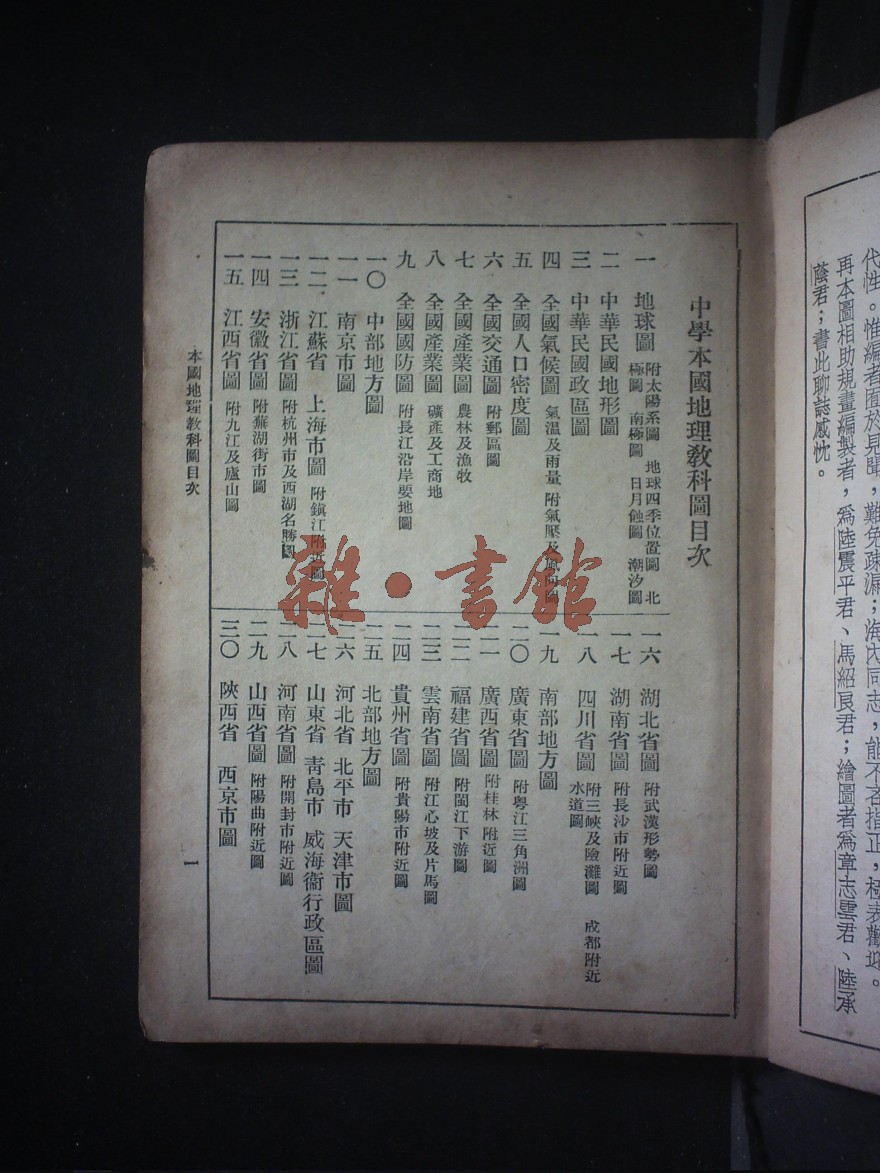 代性。惟編者囿於見聞，難免疎漏；海內同志，能不吝指正，極表歡迎。
再本圖相助規畫編製者，爲陸震平君、馬紹良君；繪圖者爲章志雲君、陸承
蔭君；書此聊誌感忱。
中學本國地理敎科圖目次
一 地球圖 附太陽系圖 地球四季位置圖 北
極圖 南極圖 日月蝕圖 潮汐圖
二 中華民國地形圖
三 中華民國政區圖
四 全國氣候圖 氣溫及雨量 附氣壓及風向圖
五 全國人口密度圖
六 全國交通圖 附郵區圖
七 全國產業圖 農林及漁牧
八 全國產業圖 礦產及工商地
九 全國國防圖 附長江沿岸要地圖
一〇 中部地方圖
一一 南京市圖
一二 江蘇省 上海市圖 附鎭江附近圖
一三 浙江省圖 附杭州市及西湖名勝圖
一四 安徽省圖 附蕪湖街市圖
一五 江西省圖 附九江及廬山圖
一六 湖北省圖 附武漢形勢圖
一七 湖南省圖 附長沙市附近圖
一八 四川省圖 附三峽及險灘圖 成都附近
水道圖
一九 南部地方圖
二〇 廣東省圖 附粵江三角洲圖
二一 廣西省圖 附桂林附近圖
二二 福建省圖 附閩江下游圖
二三 雲南省圖 附江心坡及片馬圖
二四 貴州省圖 附貴陽市附近圖
二五 北部地方圖
二六 河北省 北平市 天津市圖
二七 山東省 靑島市 威海衞行政區圖
二八 河南省圖 附開封市附近圖
二九 山西省圖 附陽曲附近圖
三〇 陝西省 西京市圖
本國地理敎科圖目次
一
雜·書館